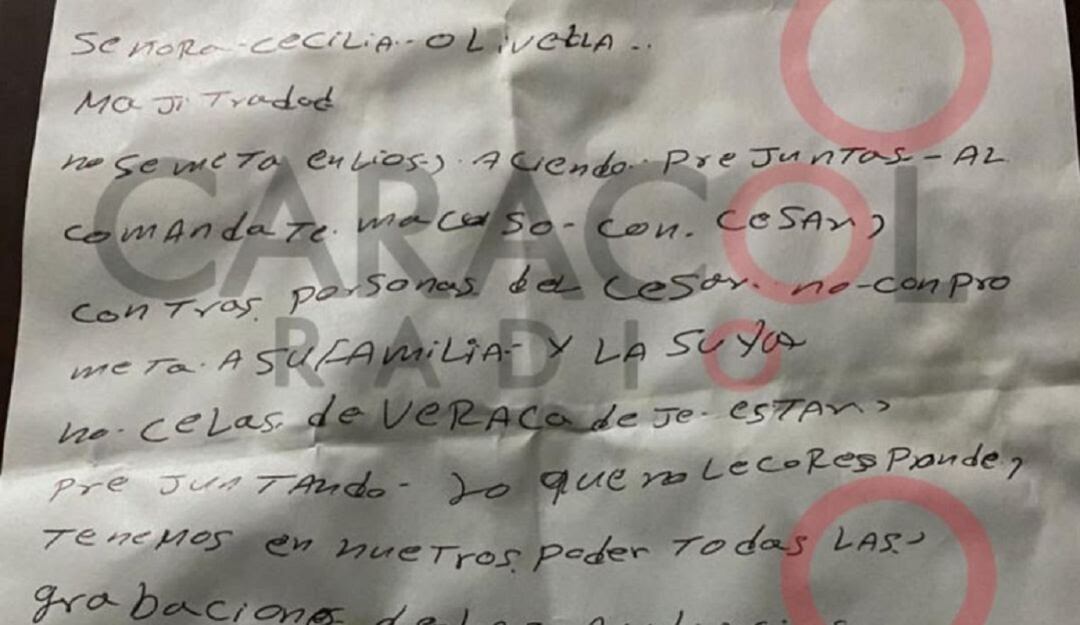 Señora - CECILIA - OLIVELLA..
MaJiTradad
no Se meTa enLios, Aciendo PreJunTas - AL
comAndaTe macaSo - con. CeSAr,
conTras personas del CeSar. no - conpro
meTa. A SU fAmiLiA - Y LA SUya
no. CeLas de VeRACa deJe - eSTAr,
PreJunTAndo - Lo que no LecoResponde,
TeneMos en nueTros poder Todas LAS,
CARACOL
RADIO
grabaciones de las